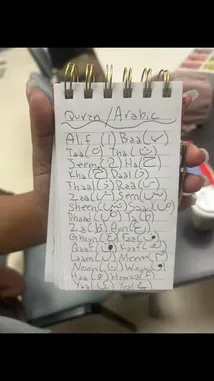 Quran/Arabic
Alif (ا) Baa(ب)
Taa(ت) Tha(ث)
Jeem(ج) Ha(ح)
Kha(خ) Daal(د)
Thaal(ذ) Raa(ر)
Zaa(ز) Seen(س)
Sheen(ش) Saad(ص)
Dhaad(ض) Ta(ط)
Za(ظ) Ayn(ع)
Ghayn(غ) Faa(ف)
Qaaf(ق) Kaaf(ك)
Laam(ل) Meem(م)
Noon(ن) Waaw(و)